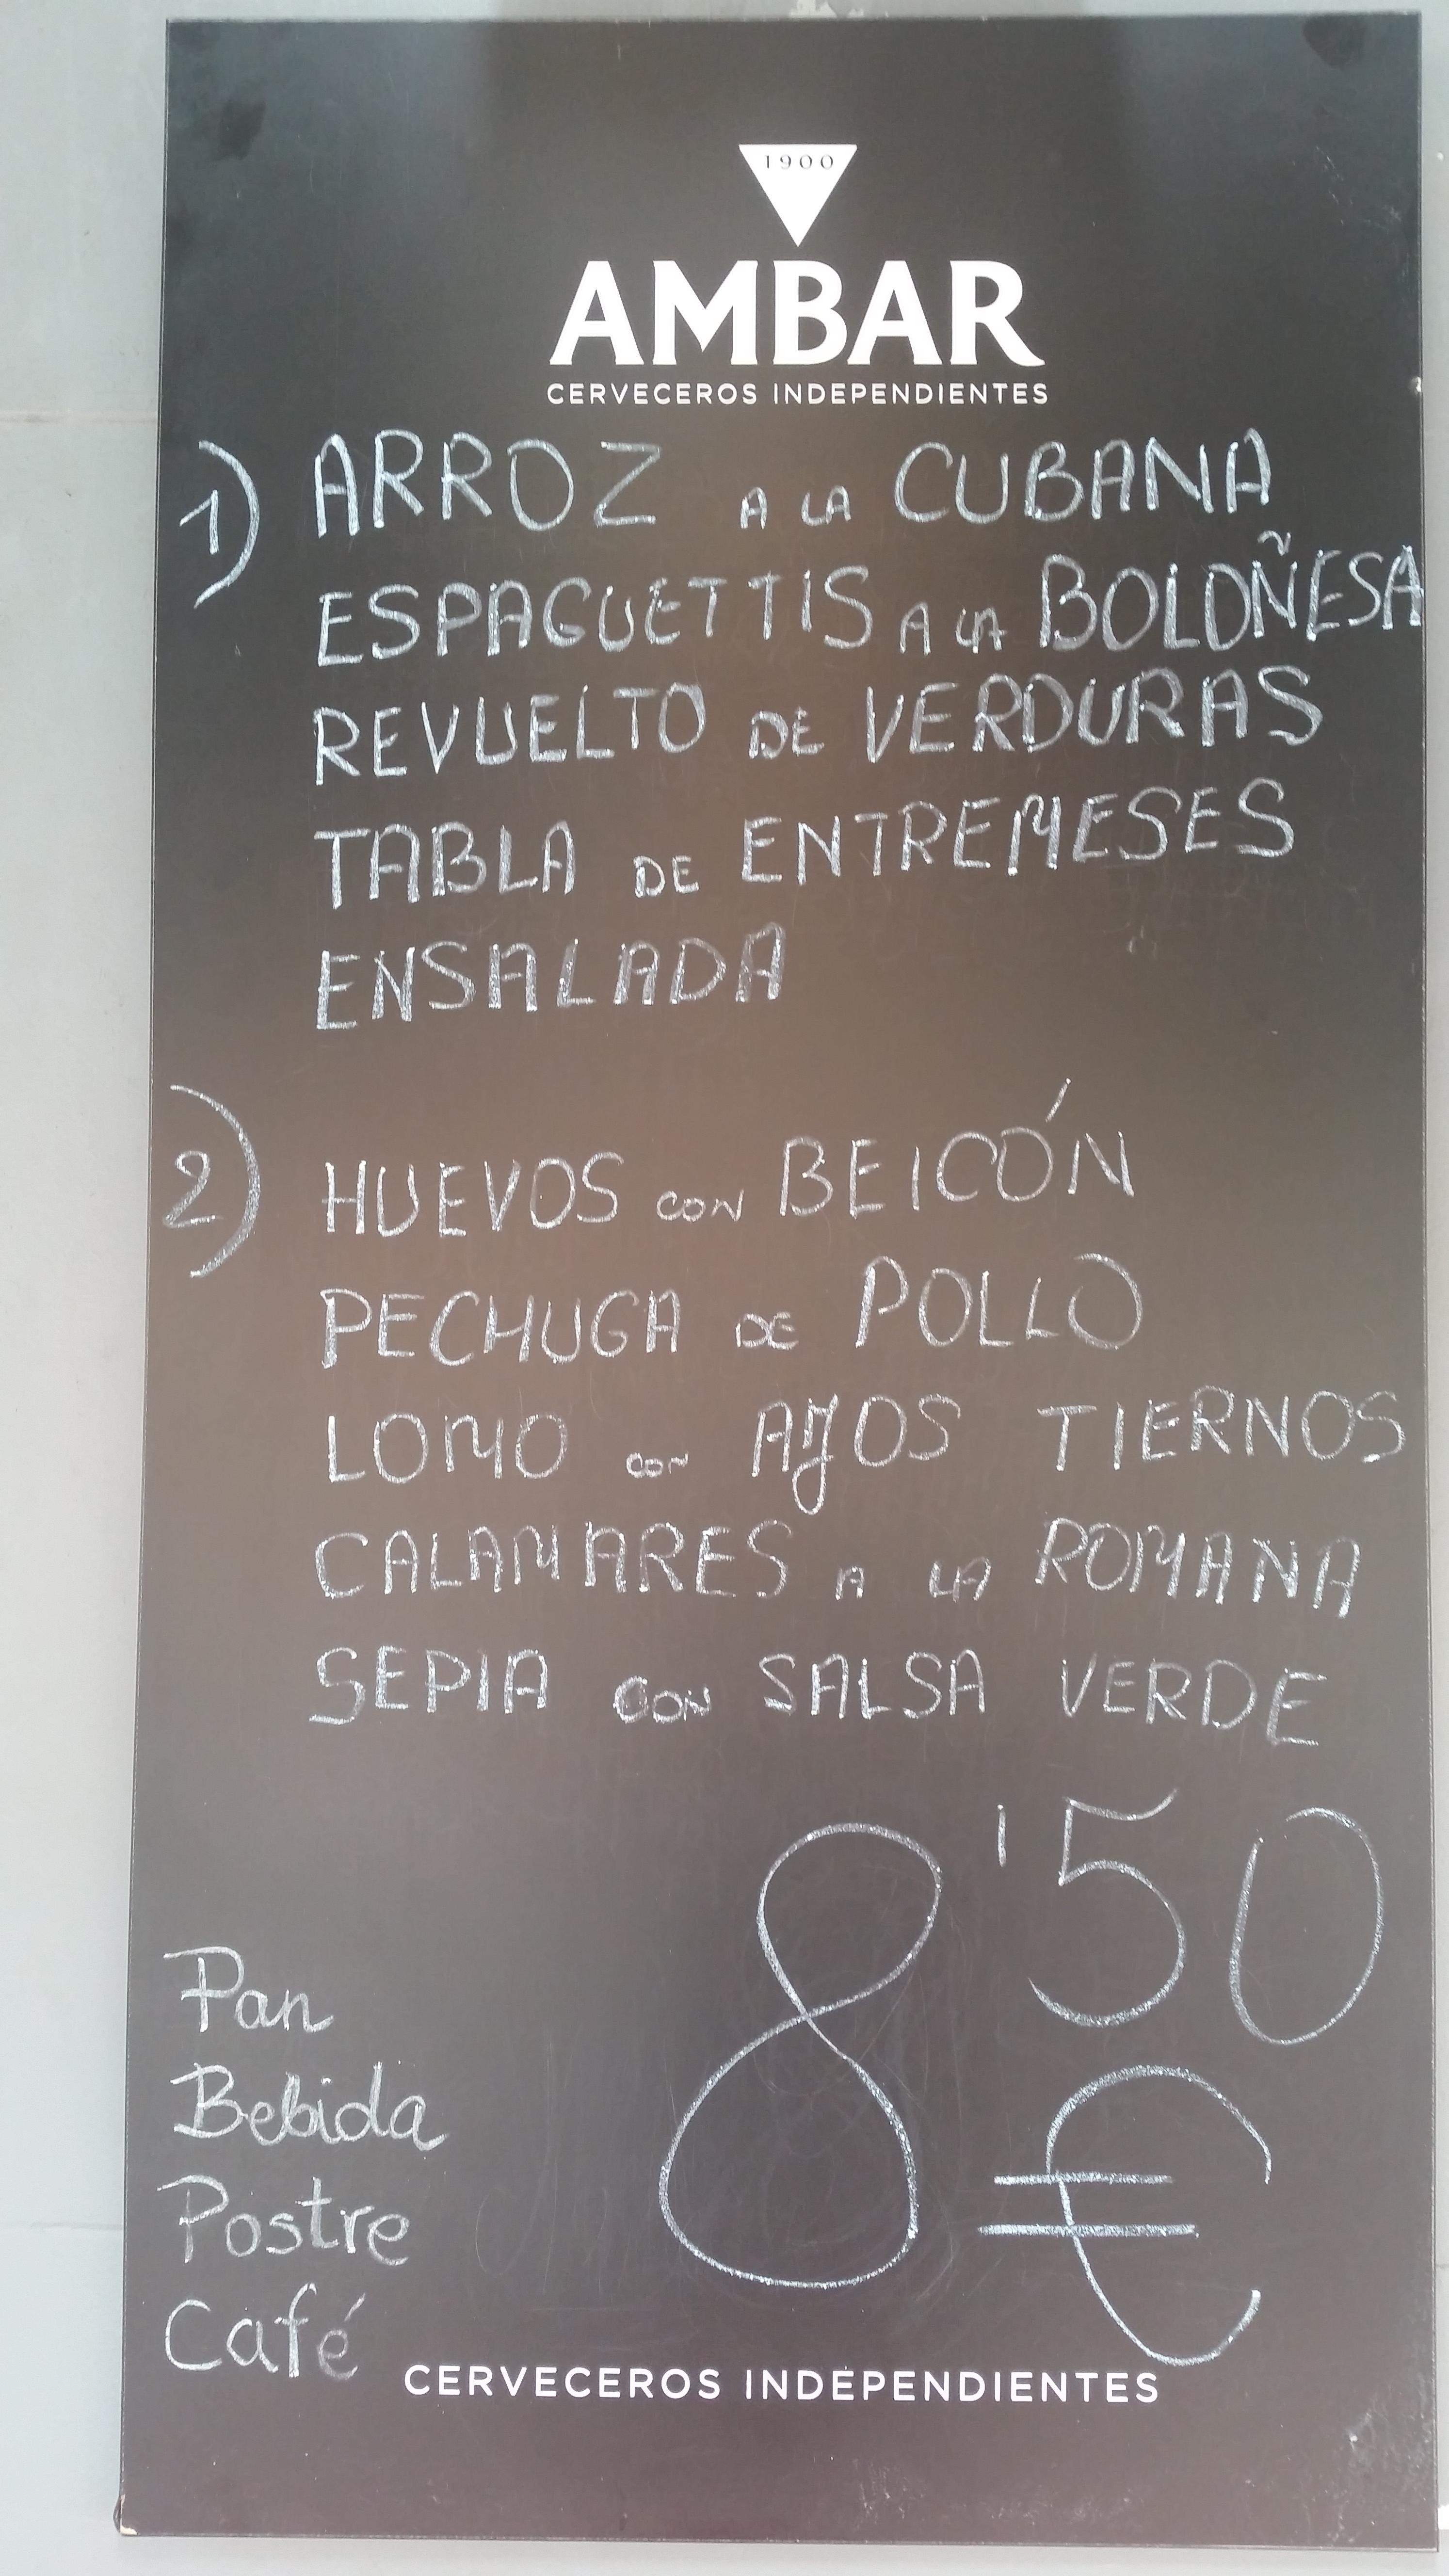 1900
AMBAR
CERVECEROS INDEPENDIENTES
1) ARROZ A LA CUBANA
ESPAGUETTIS A LA BOLOÑESA
REVUELTO DE VERDURAS
TABLA DE ENTREMESES
ENSALADA
2) HUEVOS CON BEICÓN
PECHUGA DE POLLO
LOMO CON AJOS TIERNOS
CALAMARES A LA ROMANA
SEPIA CON SALSA VERDE
8'50
€
Pan
Bebida
Postre
Café
CERVECEROS INDEPENDIENTES